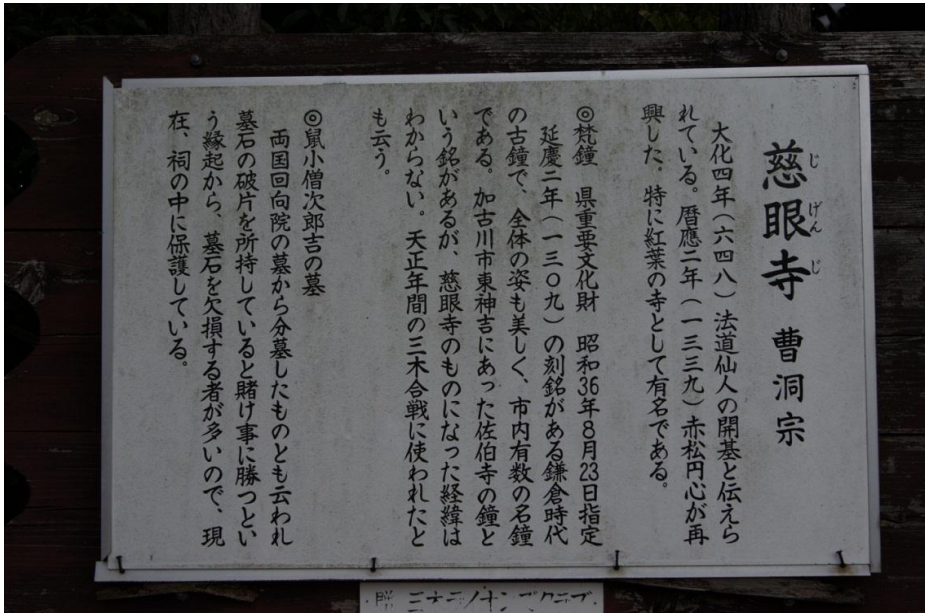 慈眼寺 曹洞宗
じげんじ
大化四年(六四八)法道仙人の開基と伝えら
れている。暦應二年(一三三九)赤松円心が再
興した。特に紅葉の寺として有名である。
◎梵鐘 県重要文化財 昭和36年8月23日指定
延慶二年(一三〇九)の刻銘がある鎌倉時代
の古鐘で、全体の姿も美しく、市内有数の名鐘
である。加古川市東神吉にあった佐伯寺の鐘と
いう銘があるが、慈眼寺のものになった経緯は
わからない。天正年間の三木合戦に使われたと
も云う。
◎鼠小僧次郎吉の墓
両国回向院の墓から分墓したものとも云われ
墓石の破片を所持していると賭け事に勝つとい
う縁起から、墓石を欠損する者が多いので、現
在、祠の中に保護している。